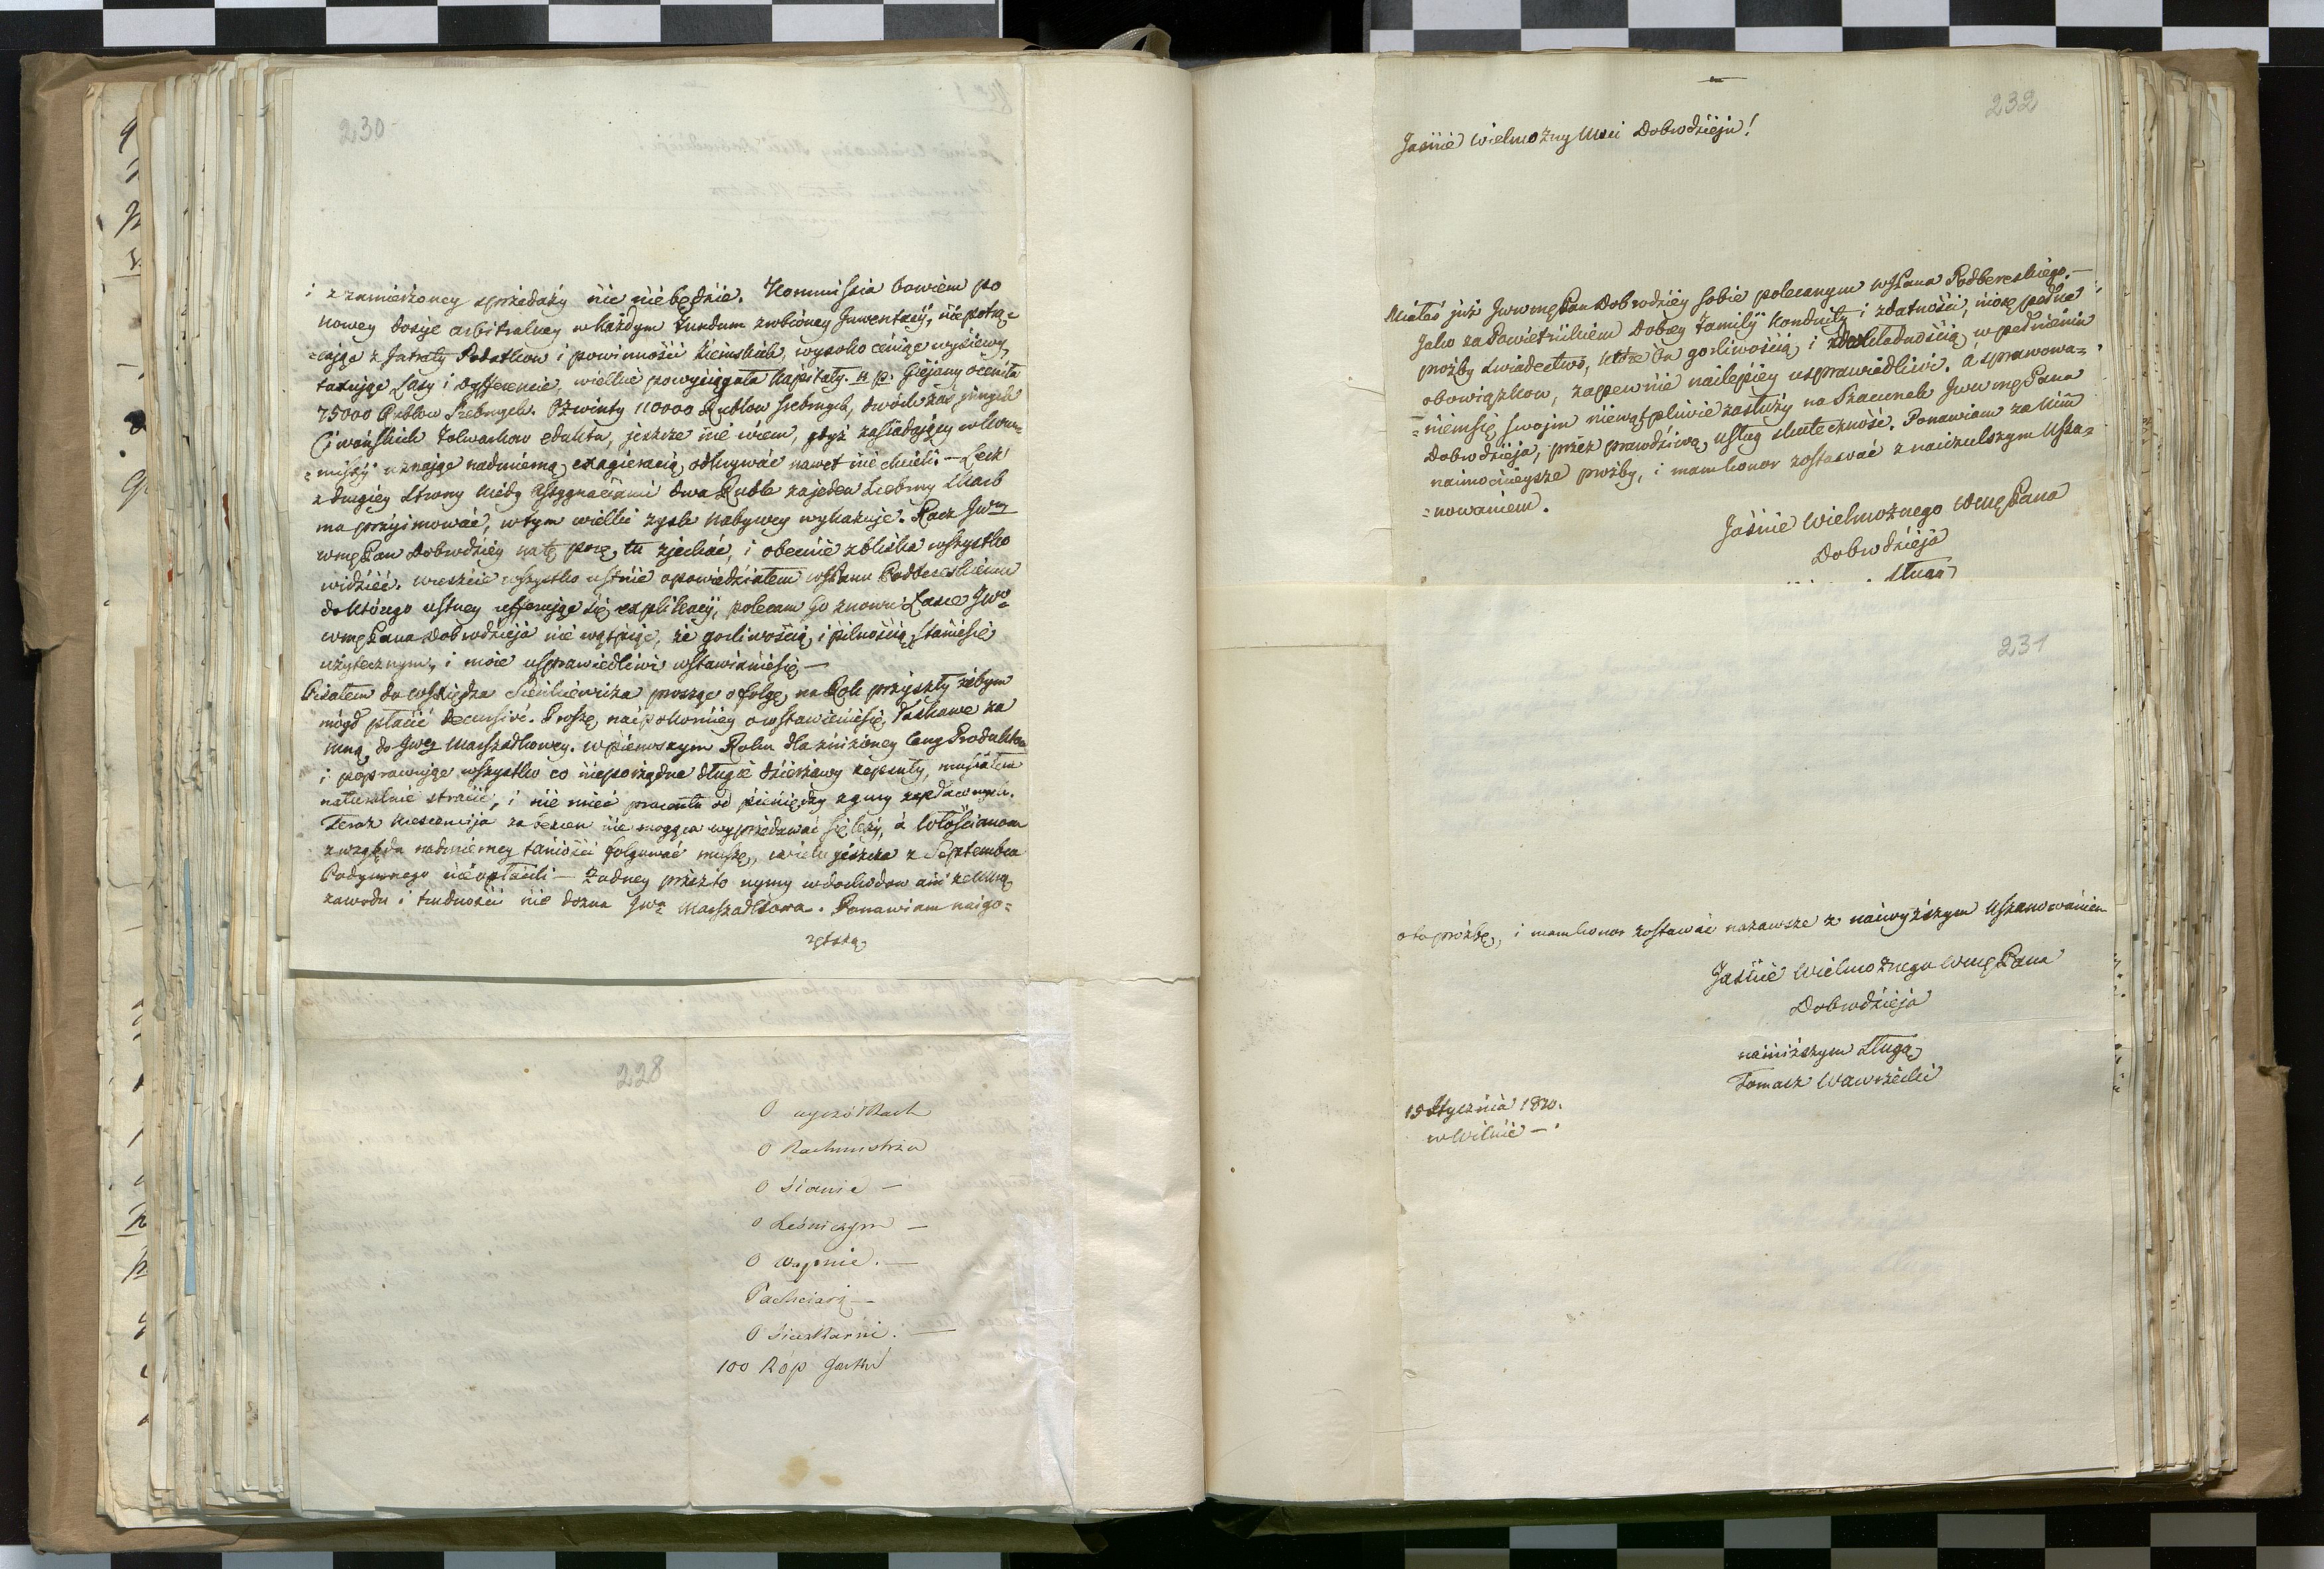 230
i z zamierzoney sprzedaży nic niebędzie. Kommissia bowiem po
nowey dosyć arbitralney w każdym Fundum zrobioney Juwentacyi, niepotrą=
=cając z Jntraty Podatkow i powinności Ziemskich, wysoko ceniąc wysiewy,
taxując Lasy i Dyfferencie, wielkie powyciągała Kapitały. n. p. Giejany oceniła
75000 Rublow Srebnych. Ożwinty 110000 Rublow srebnych, dwóch zaś jnnych
Ciwuńskich Folwarkow edukta, jeszcze nie wiem, gdyż zasiadający w Kom=
=missyi uznając nadmierną exagieracią, odkrywać nawet nie chcieli. — Lecz
z drugiey strony kiedy Assygnaciami dwa Ruble za jeden srebrny Skarb
ma przyimować, w tym wielki zysk Nabywcy wykazuje. Racz Jwny
wmę Pan Dobrodziey na tę porę, tu zjechać, i obecnie zbliska wszystko
widzieć. wreszcie wszystko ustnie opowiedziałem wJPanu Podbereskiemu
do którego ustney refferując się explikacyi, polecam Go znowu Łasce Jwo
wmę Pana Dobrodzieja nie wątpiąc, że gorliwością, i pilnością, staniesię
użytecznym, i moie usprawiedliwi wstawieniesię —
Pisałem do wJXiędza Sienkiewicza prosząc o folgę, na Rok przyszły żebym
mógł płacić decursive. Proszę, naipokorniey o wstawieniesię, łaskawe za
mną, do Jwey Marszałkowey. w pierwszym Roku dla zniżoney Ceny Produktow
i poprawując wszystko co nieporządne długie dzierżawy zepsuły, musiałem
naturalnie stracić, i nie mieć procentu od pieniędzy z gury zapłaconych.
Teraz krescencija za bezcen nie mogąca wyprzedawać się leży, a Włościanom
z względu nadmierney taniości folgować muszę, wielu jeszcze z Septembra
Podymnego nieopłacili — Żadney przeto ujmy w dochodow ani ze mną
zawodu i trudności nie dozna Jwa Marszałkowa. Ponawiam naigo=
rętszą
228
O wyczółkach
O Rachmistrzu
O Sianie —
O Leśniczym —
O Wapnie. —
Pachciarz —
O Sieczkarni. —
100 Kóp
232
Jaśnie Wielmożny Mści Dobrodzieju!
Miałeś już Jwwmę Pan Dobrodziey sobie polecanym wJPana Podbereskiego. —
Jako za Powietnikiem Dobrey Familii Kondiuty i zdatności, niosę pełne
prożby świadectwo, które On gorliwością, i dokładnością, w pełnieniu
obowiązkow, zapewnie nailepiey usprawiedliwi. A sprawowa=
=niemsię, swojm niewątpliwie zasłuży na Szacunek Jwwmę Pana
Dobrodzieja, przez prawdziwą, usług skuteczność. Ponawiam za Nim
naimocnieysze prożby, i mam honor zostawać z naiczulszym Usza=
=nowaniem.
Jaśnie Wielmożnego Wmę Pana
Dobrodzieja
Sługą
231
o to prożbę, i mam honor zostawać nazawsze z naiwyższym Uszanowaniem
Jaśnie Wielmożnego Wmę Pana
Dobrodzieja
nainiższym Sługą
Tomasz Wawrzecki
19 Stycznia 1810.
w Wilnie —.